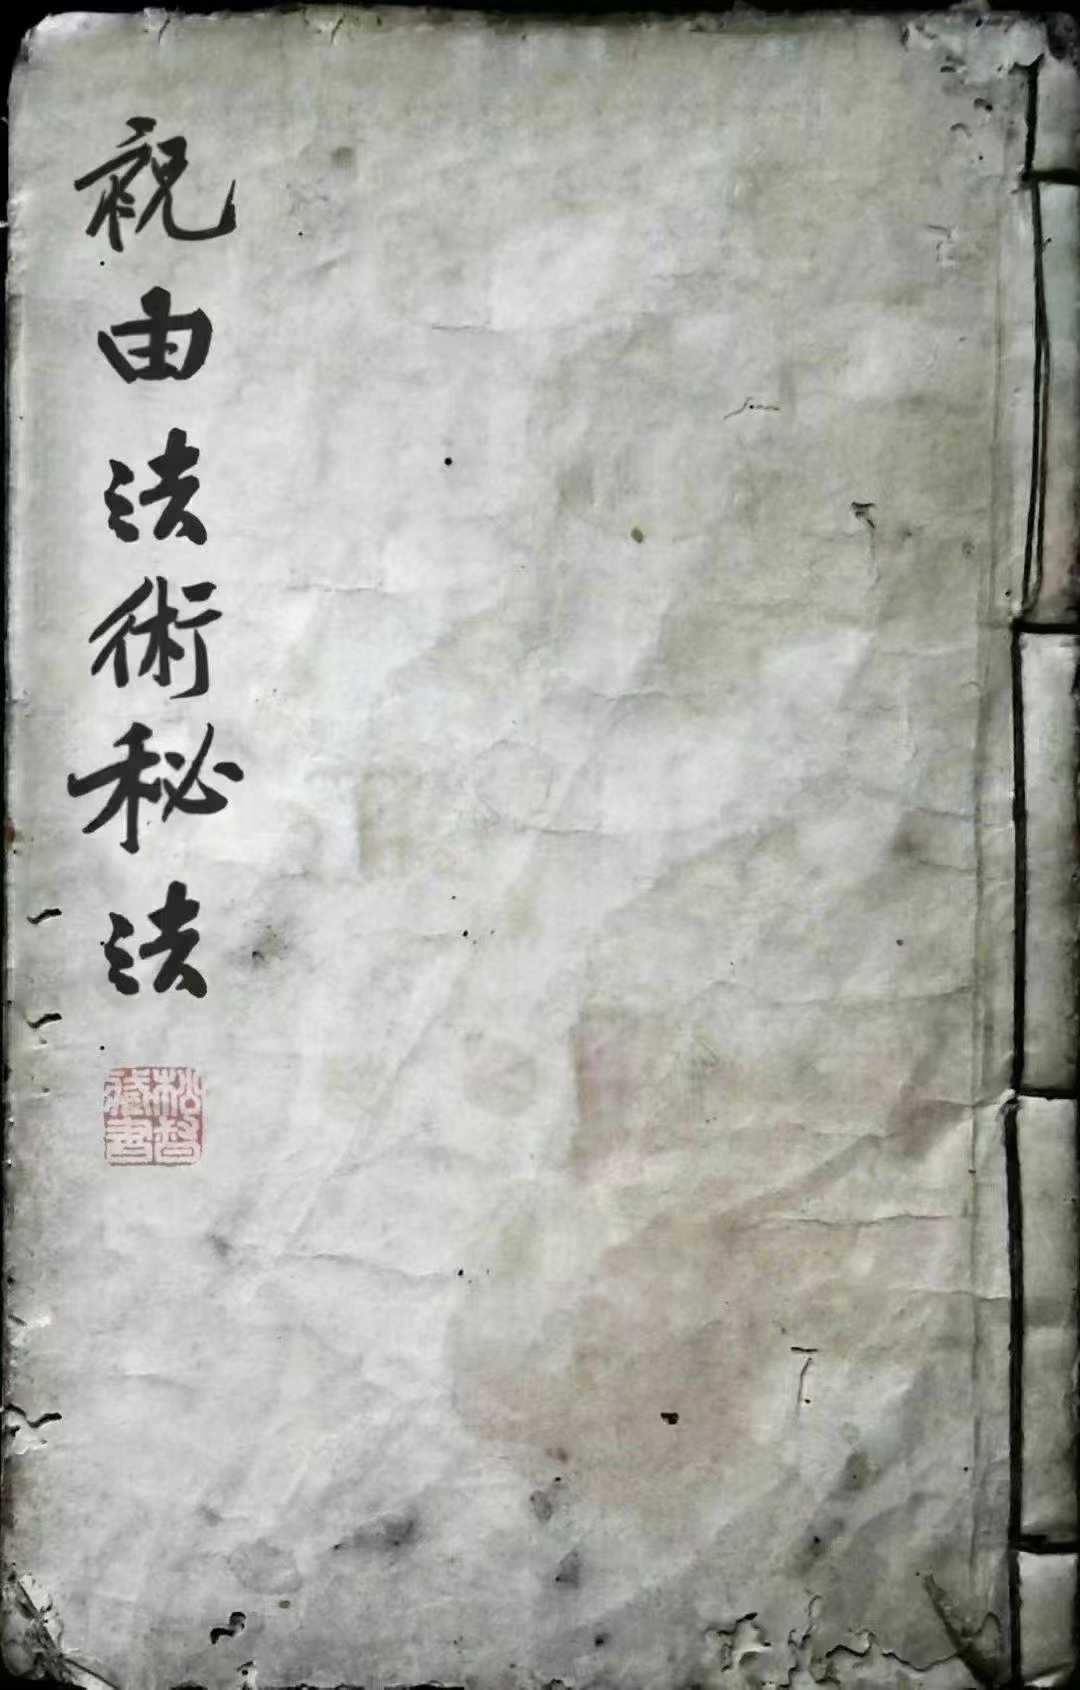 祝由法術秘法